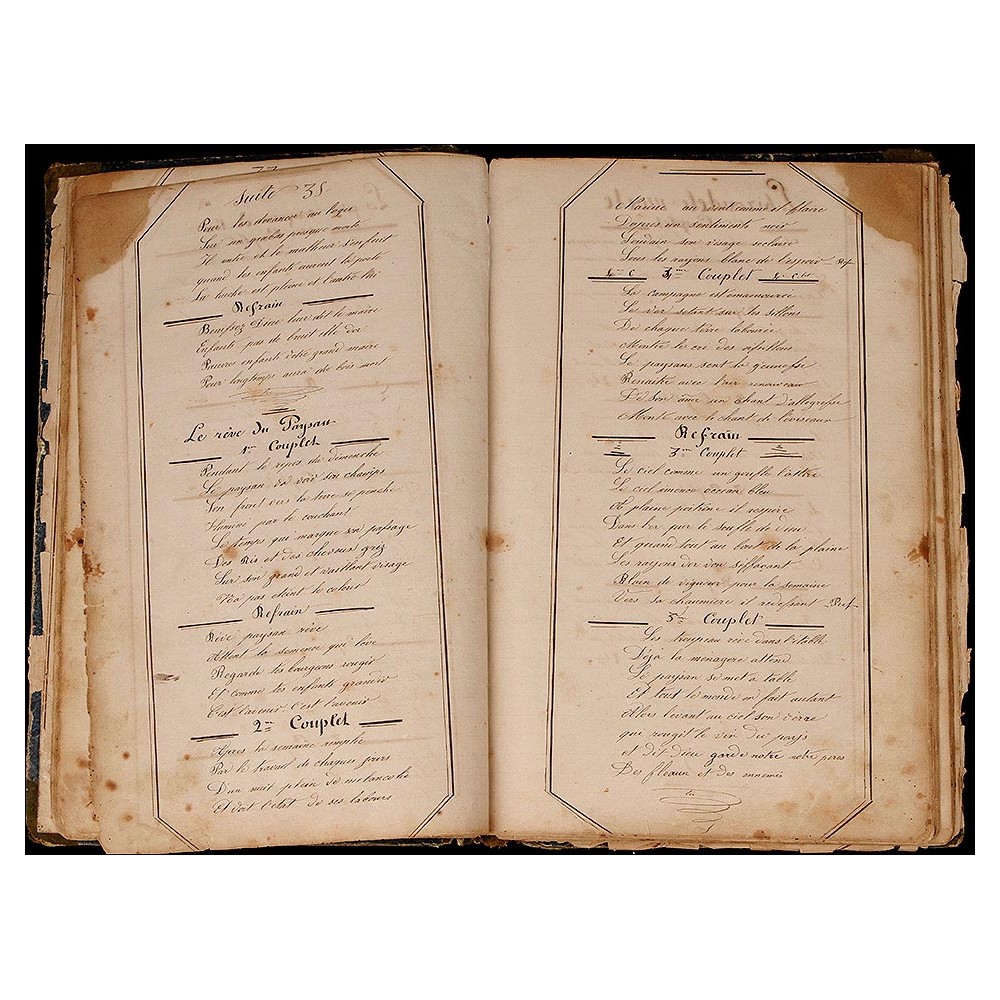 Suite 35
Pour les devancer au logis
Sur un grabas presque morte
Il entre et le malheur s'enfuit
quand les enfants ouvrent la porte
La huche est pleine et l'autre
Refrain
Benissez Dieu leur dit le maire
Enfants pas de bruit elle dor
Pauvres enfants votre grand maire
Pour longtemps aura du bois mort
Le rêve du Paysan
1er Couplet
Pendant le repos du dimenche
Le paysan va voir son champs
Son front vers la terre se penche
par le couchant
Le temps qui marque son passage
Des Ris et des cheveux gris
Sur son grand et vaillant visage
N'a pas éteint le coloris
Refrain
Rêve paysan rêve
Attent la semence qui lève
Regarde les bourgeons rougir
Et comme les enfants grandir
C'est l'avenir c'est l'avenir
2me Couplet
Apres la semaine remplie
Par le travail de chaques jours
D'un nuit plein de melancolie
Et voit l'état de ses labours
Narine au vent comme il flaire
Depuis un sentiments noir
Soudain son visage seclaire
Sous les rayons blanc de l'espoir Ref
4me C 3me Couplet 4e Cplet
La campagne est enamourée
Le ver setint sur les sillons
De chaque terre labourée
Monte le cri des oisillons
Le paysans sent la jeunesse
Renaitre avec l'air renouveau
De son âme un chant d'allegresse
Monte avec le chant de l'oiseaux
Refrain
3me Couplet
Le ciel comme un goufle l'attire
Le ciel imence ocean bleu
A pleine poitrine il respire
Dans l'er pur le soufle de dieu
Et quand tout au bout de la plaine
Les rayons d'or von seffaçant
Plain de vigueur pour la semaine
Vers sa chaumière il redessant Ref
5me Couplet
Les troupeau revé dans l'étable
Déjà la ménagere attend
Le paysan se met a table
Et tout le monde en fait autant
Alors levant au ciel son verre
que rougit le vin du pays
et dit dieu garde notre notre peres
Des fleaux et des ennemis